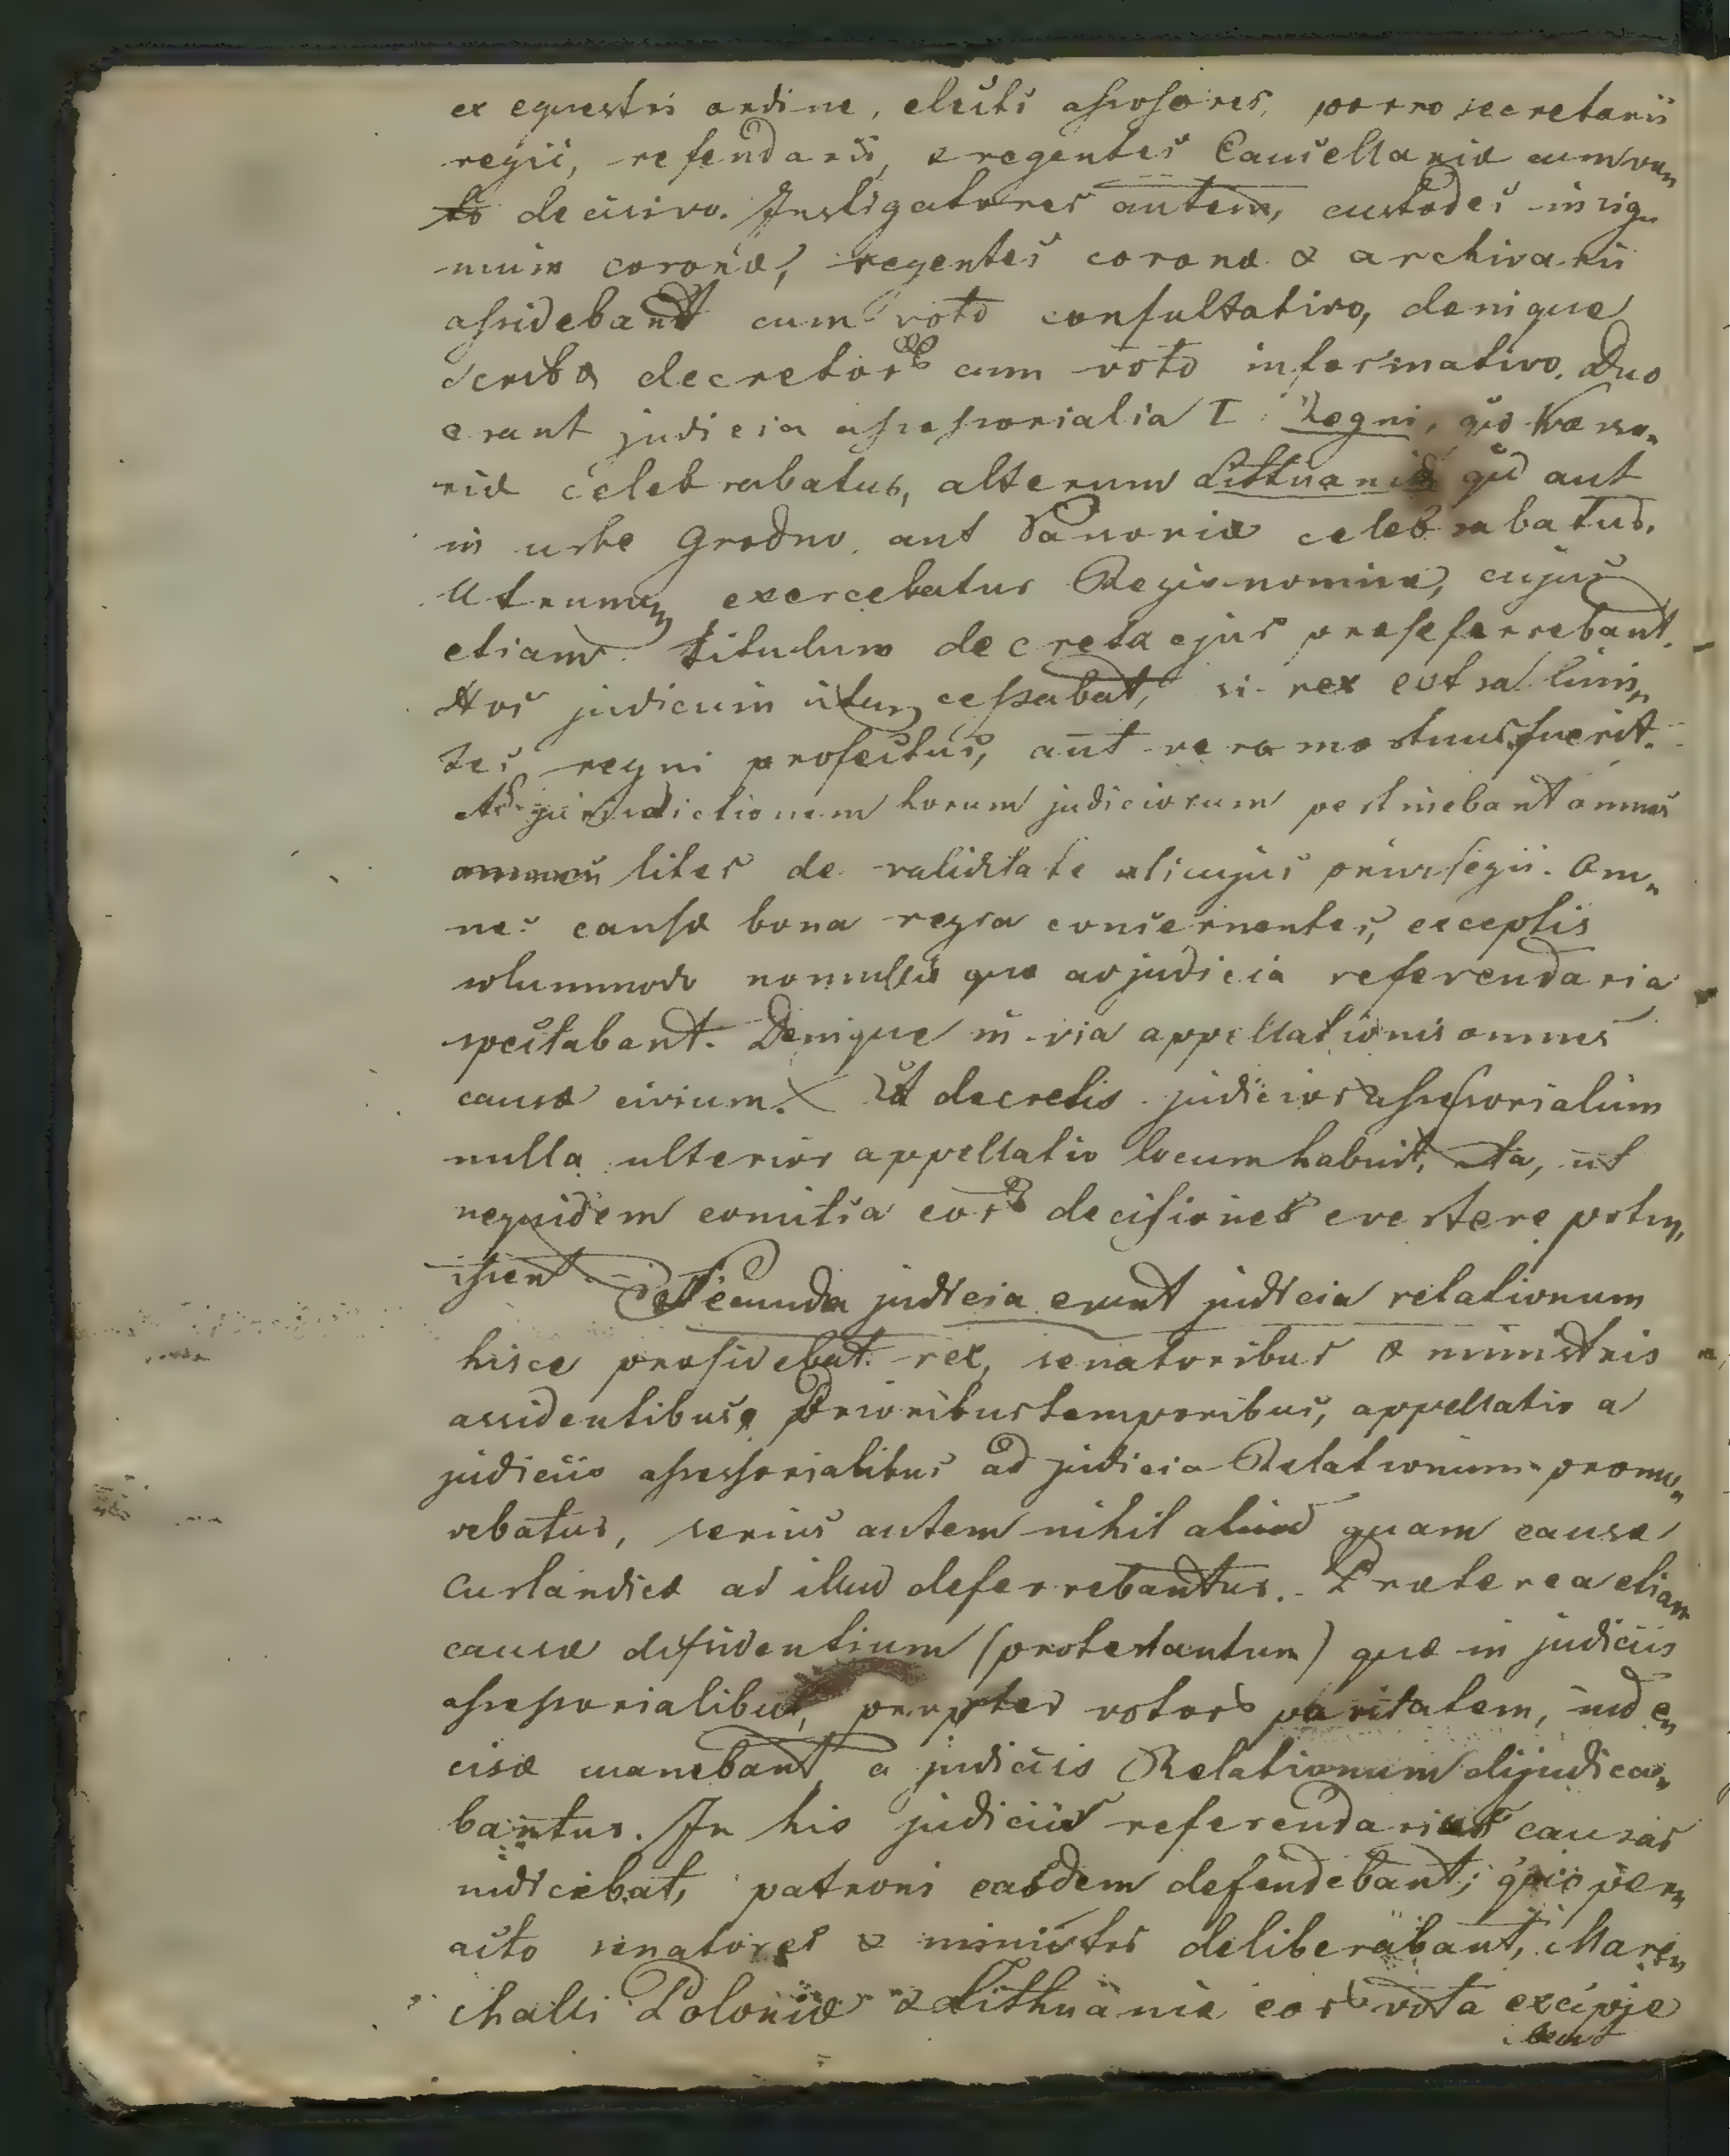 ex equestri ordine, electi assessores, porro secretarii
regii, refendarii, & regentes Cancellariæ cum vo„
to decisivo. Instigatores autem, custodes insig„
nium coronæ, regentes coronæ & archivarii
assidebant cum voto consultativo, denique
scribæ decretor cum voto informativo. Duo
erant judicia assessorialia I Regni, qd Varso„
viæ celebrabatur, alterum Lithuaniæ qd aut
in urbe Grodno, aut Varsoviæ celebrabatur.
Utrumq exercebatur Regis nomine, cujus
etiam titulum decreta ejus præseferrebant.
Hor judicium itum cessabat, si rex extra limi„
tes regni profectus, aut vero mortuus fuerit.
Ad jurisdictionem horum judiciorum pertinebant omnes
lites de validitate alicujus privilegii. Om„
nes causæ bona regia concernentes, exceptis
solummodo nonnullis quæ ad judicia referendaria
spectabant. Denique in via appellationis omnes
causæ civium. Ut decretis judicior assessorialium
nulla ulterior appellatio locum habuit, ita, ut
nequidem comitia eor decisiones evertere potu„
issent. Secunda judicia erant judicia relationum
hisce præsidebat rex, senatoribus & ministris
assidentibus, Prioribus temporibus, appellatio a
judiciis assessorialibus ad judicia Relationum promo„
vebatur, serius autem nihil aliud quam causæ
Curlandicæ ad illud deferrebantur. Præterea etiam
causæ dissidentium (protestantum) quæ in judiciis
assessorialibus, propter votor paritatem, inde„
cisæ manebant, a judiciis Relationum dijudica„
bantur. In his judiciis referendarius causas
indicebat, patroni easdem defendebant; quo per„
acto senatores & ministri deliberabant, Mare„
challi Poloniæ & Lithuaniæ eor vota excipie
bant